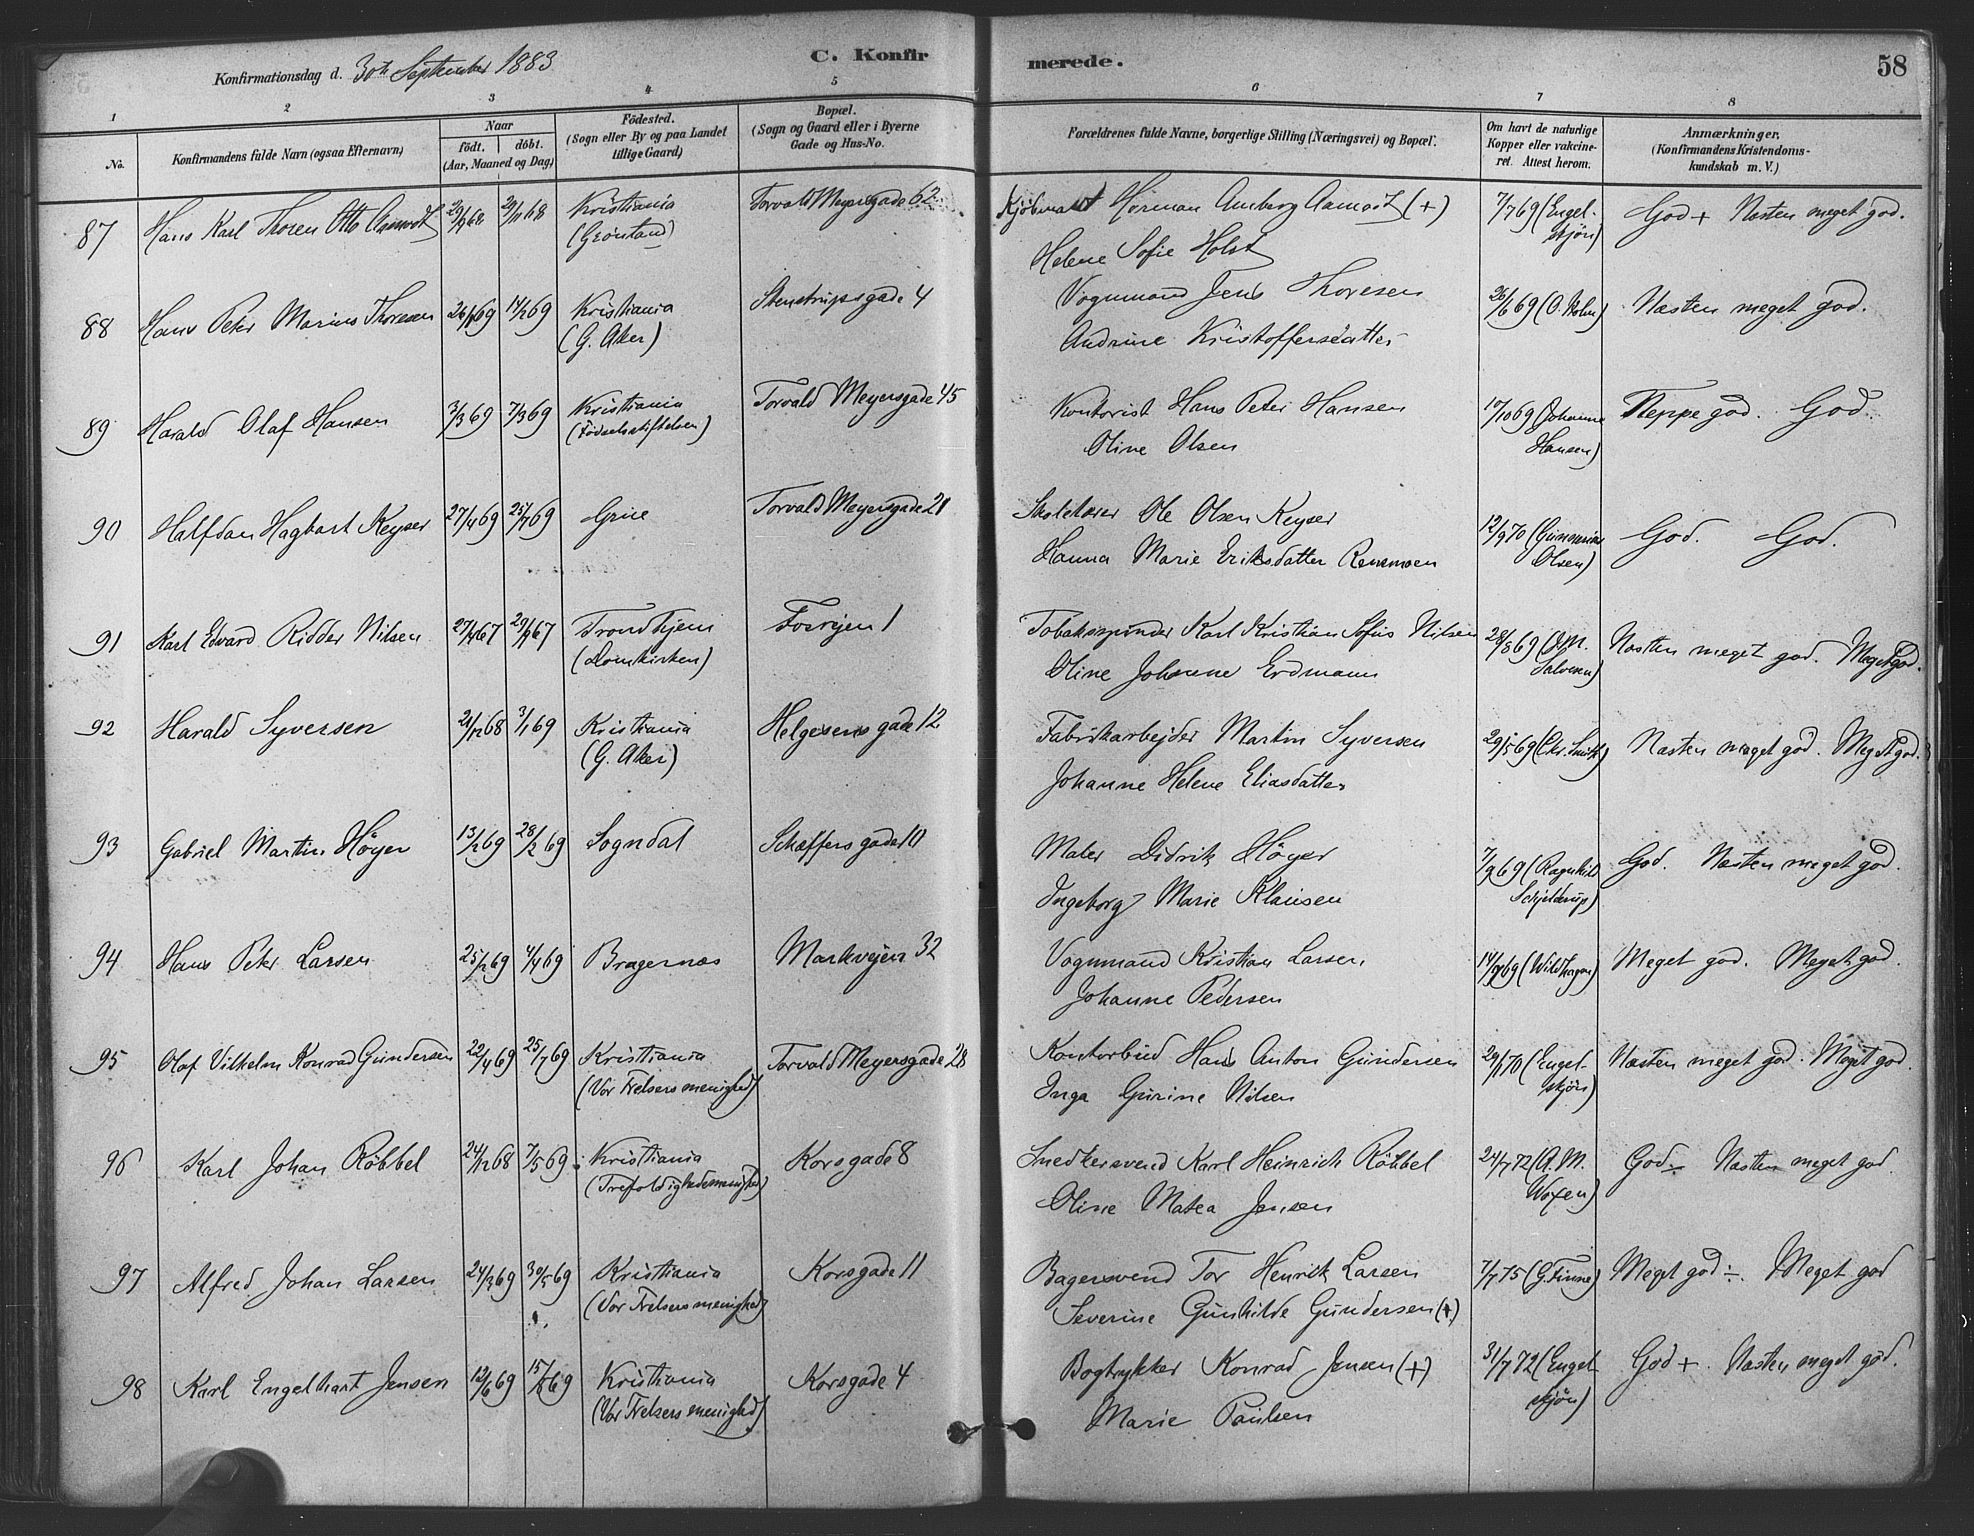 Konfirmationsdag d. 30te September 1883
C. Konfirmerede.
58
1 2 3 4 5 6 7 8
No.
Konfirmandens fulde Navn (ogsaa Efternavn)
Naar
født. døbt.
(Aar, Maaned og Dag)
Fødested.
(Sogn eller By og paa Landet
tillige Gaard)
Bopæl.
(Sogn og Gaard eller i Byerne
Gade og Hus-No.
Forældrenes fulde Navne, borgerlige Stilling (Næringsvei) og Bopæl.
Om havt de naturlige
Kopper eller vakcine-
ret. Attest herom.
Anmærkninger.
(Konfirmandens Kristendoms-
kundskab m. V.)
87 Hans Karl Thoren Otto Aamodt 68 68 Kristiania Torvald Meyersgade 62 Herman Amberg Aamodt (+) 7/7 69 (Engel- God + Næsten meget god.
(Grønland) Helene Sofie Holst skjön)
88 Hans Peter Marius Thoresen 69 14/2 69 Kristiania Stenstrupsgade 4 Vognmand Jens Thoresen 26/6 69 (O. Holm) Næsten meget god.
(G. Aker) Andrine Kristoffersdatter
89 Harald Olaf Hansen 3/3 69 7/3 69 Kristiania Torvald Meyersgade 45 Kontorist Hans Peter Hansen 10/10 69 (Johanne Neppe god. God.
(Fødselsstiftelsen) Oline Olsen Hansen)
90 Halfdan Hagbart Keyser 27/4 69 25/7 69 Grue Torvald Meyersgade 21 Skolelærer Ole Olsen Keyser 12/9 70 (Gunnerine God. God.
Hanna Marie Eriksdatter Rensmoen Olsen)
91 Karl Edvard Ridder Nilsen 67 67 Trondhjem Fosvejen 1 Tobaksspinder Karl Kristian Sofus Nilsen 28/8 69 (J.M. Næsten meget god. Meget god.
(Domkirken) Oline Johanne Erdmann Salvesen)
92 Harald Syversen 21/12 68 3/1 69 Kristiania Helgesens gade 12 Fabrikarbejder Martin Syversen 29/5 69 (Chr. Smith) Næsten meget god. Meget god.
(G. Aker) Johanne Helene Eliasdatter
93 Gabriel Martin Höyer 13/2 69 28/2 69 Sogndal Schæffersgade 10 Maler Didrik Höyer 7/9 69 (Ragnhild God. Næsten meget god.
Ingeborg Marie Klausen Schjelderup)
94 Hans Peter Larsen 25/2 69 4/4 69 Bragernæs Markvejen 32 Vognmand Kristian Larsen, 69 (Wildhagen) Meget god. Meget god.
Johanne Pedersen
95 Olaf Vilhelm Konrad Gundersen 22/4 69 25/7 69 Kristiania Torvald Meyersgade 28 Kontorbud Hans Anton Gundersen 70 (Engel- Næsten meget god. Meget god.
(Vor Frelsers menighed) Inga Gurine Nilsen skjön)
96 Karl Johan Röbbel 24/12 68 7/5 69 Kristiania Korsgade 8 Snedkersvend Karl Heinrich Röbbel 24/7 72 (A. M. God ÷ Næsten meget god.
(Trefoldighedsmenighed) Oline Matea Jensen Woxen)
97 Alfred Johan Larsen 24/3 69 30/5 69 Kristiania Korsgade 11 Bagersvend Tor Henrik Larsen 7/7 75 (G. Finne) Meget god ÷. Meget god
(Vor Frelsers menighed) Severine Gunhilde Gundersen (+)
98 Karl Engelhart Jensen 12/6 69 69 Kristiania Korsgade 4 Bogtrykker Konrad Jensen (+) 31/7 72 (Engel- God +. Næsten meget god.
(Vor Frelsers menighed) Marie Paulsen skjön)